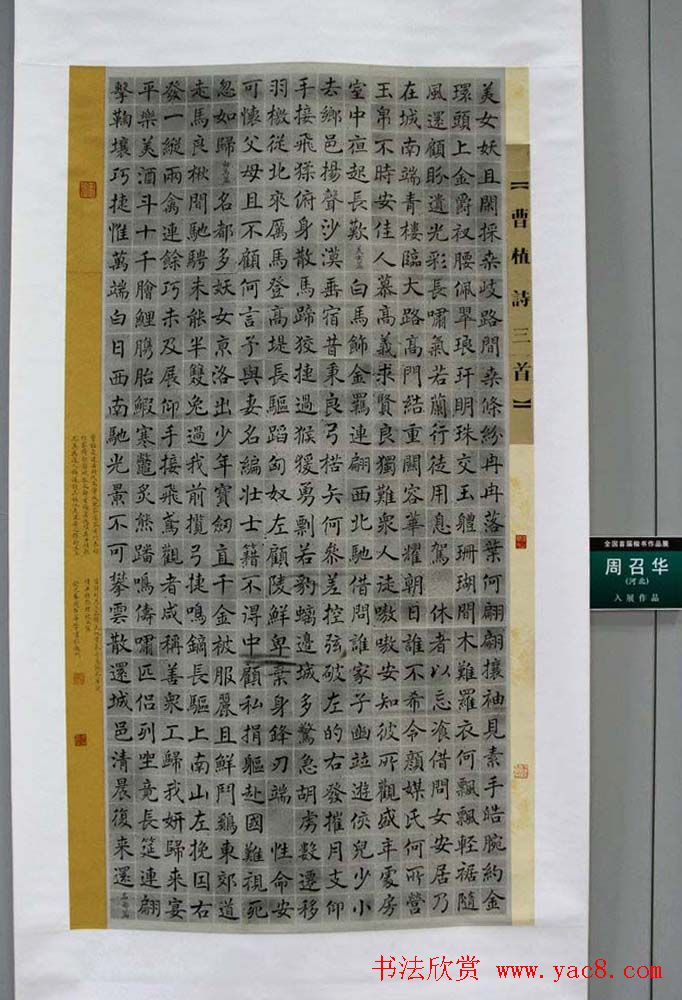 【曹植詩三首】
美女妖且閑採桒岐路間桒條紛冉冉落葉何翩翩攘袖見素手皓腕約金
環頭上金爵釵腰佩翠琅玕明珠交玉體珊瑚間木難羅衣何飄飄輕裾隨
風還顧盼遺光彩長嘯氣若蘭行徒用息駕休者以忘湌借問女安居乃
在城南端青樓臨大路高門結重關容華耀朝日誰不希令顏媒氏何所營
玉帛不時安佳人慕高義求賢良獨難衆人徒嗷嗷安知彼所觀盛年處房
室中夜起長歎美女篇白馬飾金羈連翩西北馳借問誰家子幽並遊俠兒少小
去鄉邑揚聲沙漠垂宿昔秉良弓楛矢何參差控弦破左的右發摧月支仰
手接飛猱俯身散馬蹄狡捷過猴猨勇剽若豹螭邊城多警急胡虜數遷移
羽檄從北來厲馬登高堤長驅蹈匈奴左顧陵鮮卑棄身鋒刃端性命安
可懷父母且不顧何言子與妻名編壯士籍不得中顧私捐軀赴國難視死
忽如歸白馬篇名都多妖女京洛出少年寶劍直千金被服麗且鮮鬥鷄東郊道
走馬長楸間馳騁未能半雙兔過我前攬弓捷鳴鏑長驅上南山左挽因右
發一縱兩禽連餘巧未及展仰手接飛鳶觀者咸稱善衆工歸我妍歸來宴
平樂美酒斗十千膾鯉臇胎鰕寒鼈炙熊蹯鳴儔嘯匹侶列坐竟長筵連翩
擊鞠壤巧捷惟萬端白日西南馳光景不可攀雲散還城邑清晨復來還名都篇
全国首届楷书作品展
周召华
(河北)
入展作品
书法欣赏 www.yac8.com